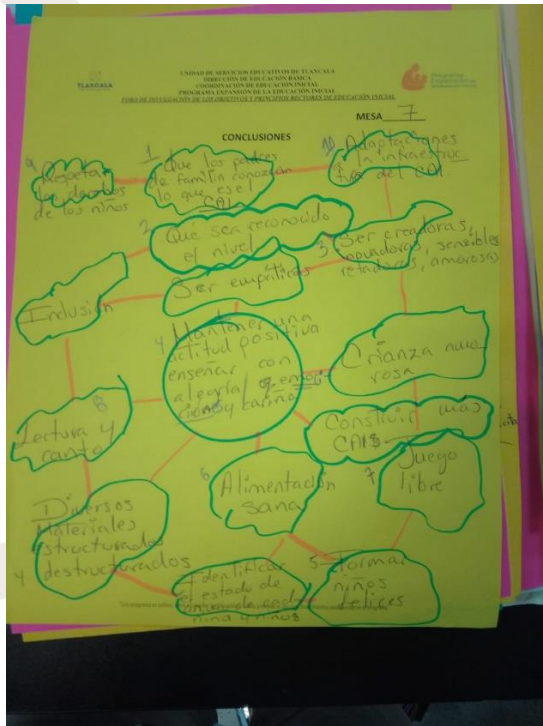 TLAXCALA
UNIDAD DE SERVICIOS EDUCATIVOS DE TLAXCALA
DIRECCIÓN DE EDUCACIÓN BÁSICA
COORDINACIÓN DE EDUCACIÓN INICIAL
PROGRAMA EXPANSIÓN DE LA EDUCACIÓN INICIAL
FORO DE DIVULGACIÓN DE LOS OBJETIVOS Y PRINCIPIOS RECTORES DE EDUCACIÓN INICIAL
MESA 7
CONCLUSIONES
9 Respetar
los derechos
de los niños
1 Que los padres
de familia conozcan
lo que es el
CAI
10 Adaptaciones
a la infraestruc
tura del CAI
2 Que sea reconocido
el nivel
3 Ser creadoras,
sensibles
retadoras, amorosas
Inclusión
Ser empáticos
4 Mantener una
actitud positiva
enseñar con
alegría, emo
ción y cariño
Crianza amo
rosa
8
Lectura y
canto
Construir más
CAIS
6
Alimentación
sana
7 Juego
libre
Diversos
Materiales
estructurados
4 destructurados
Identificar
el estado de
ánimo de cada
niña y niños
5 Formar
niños
felices